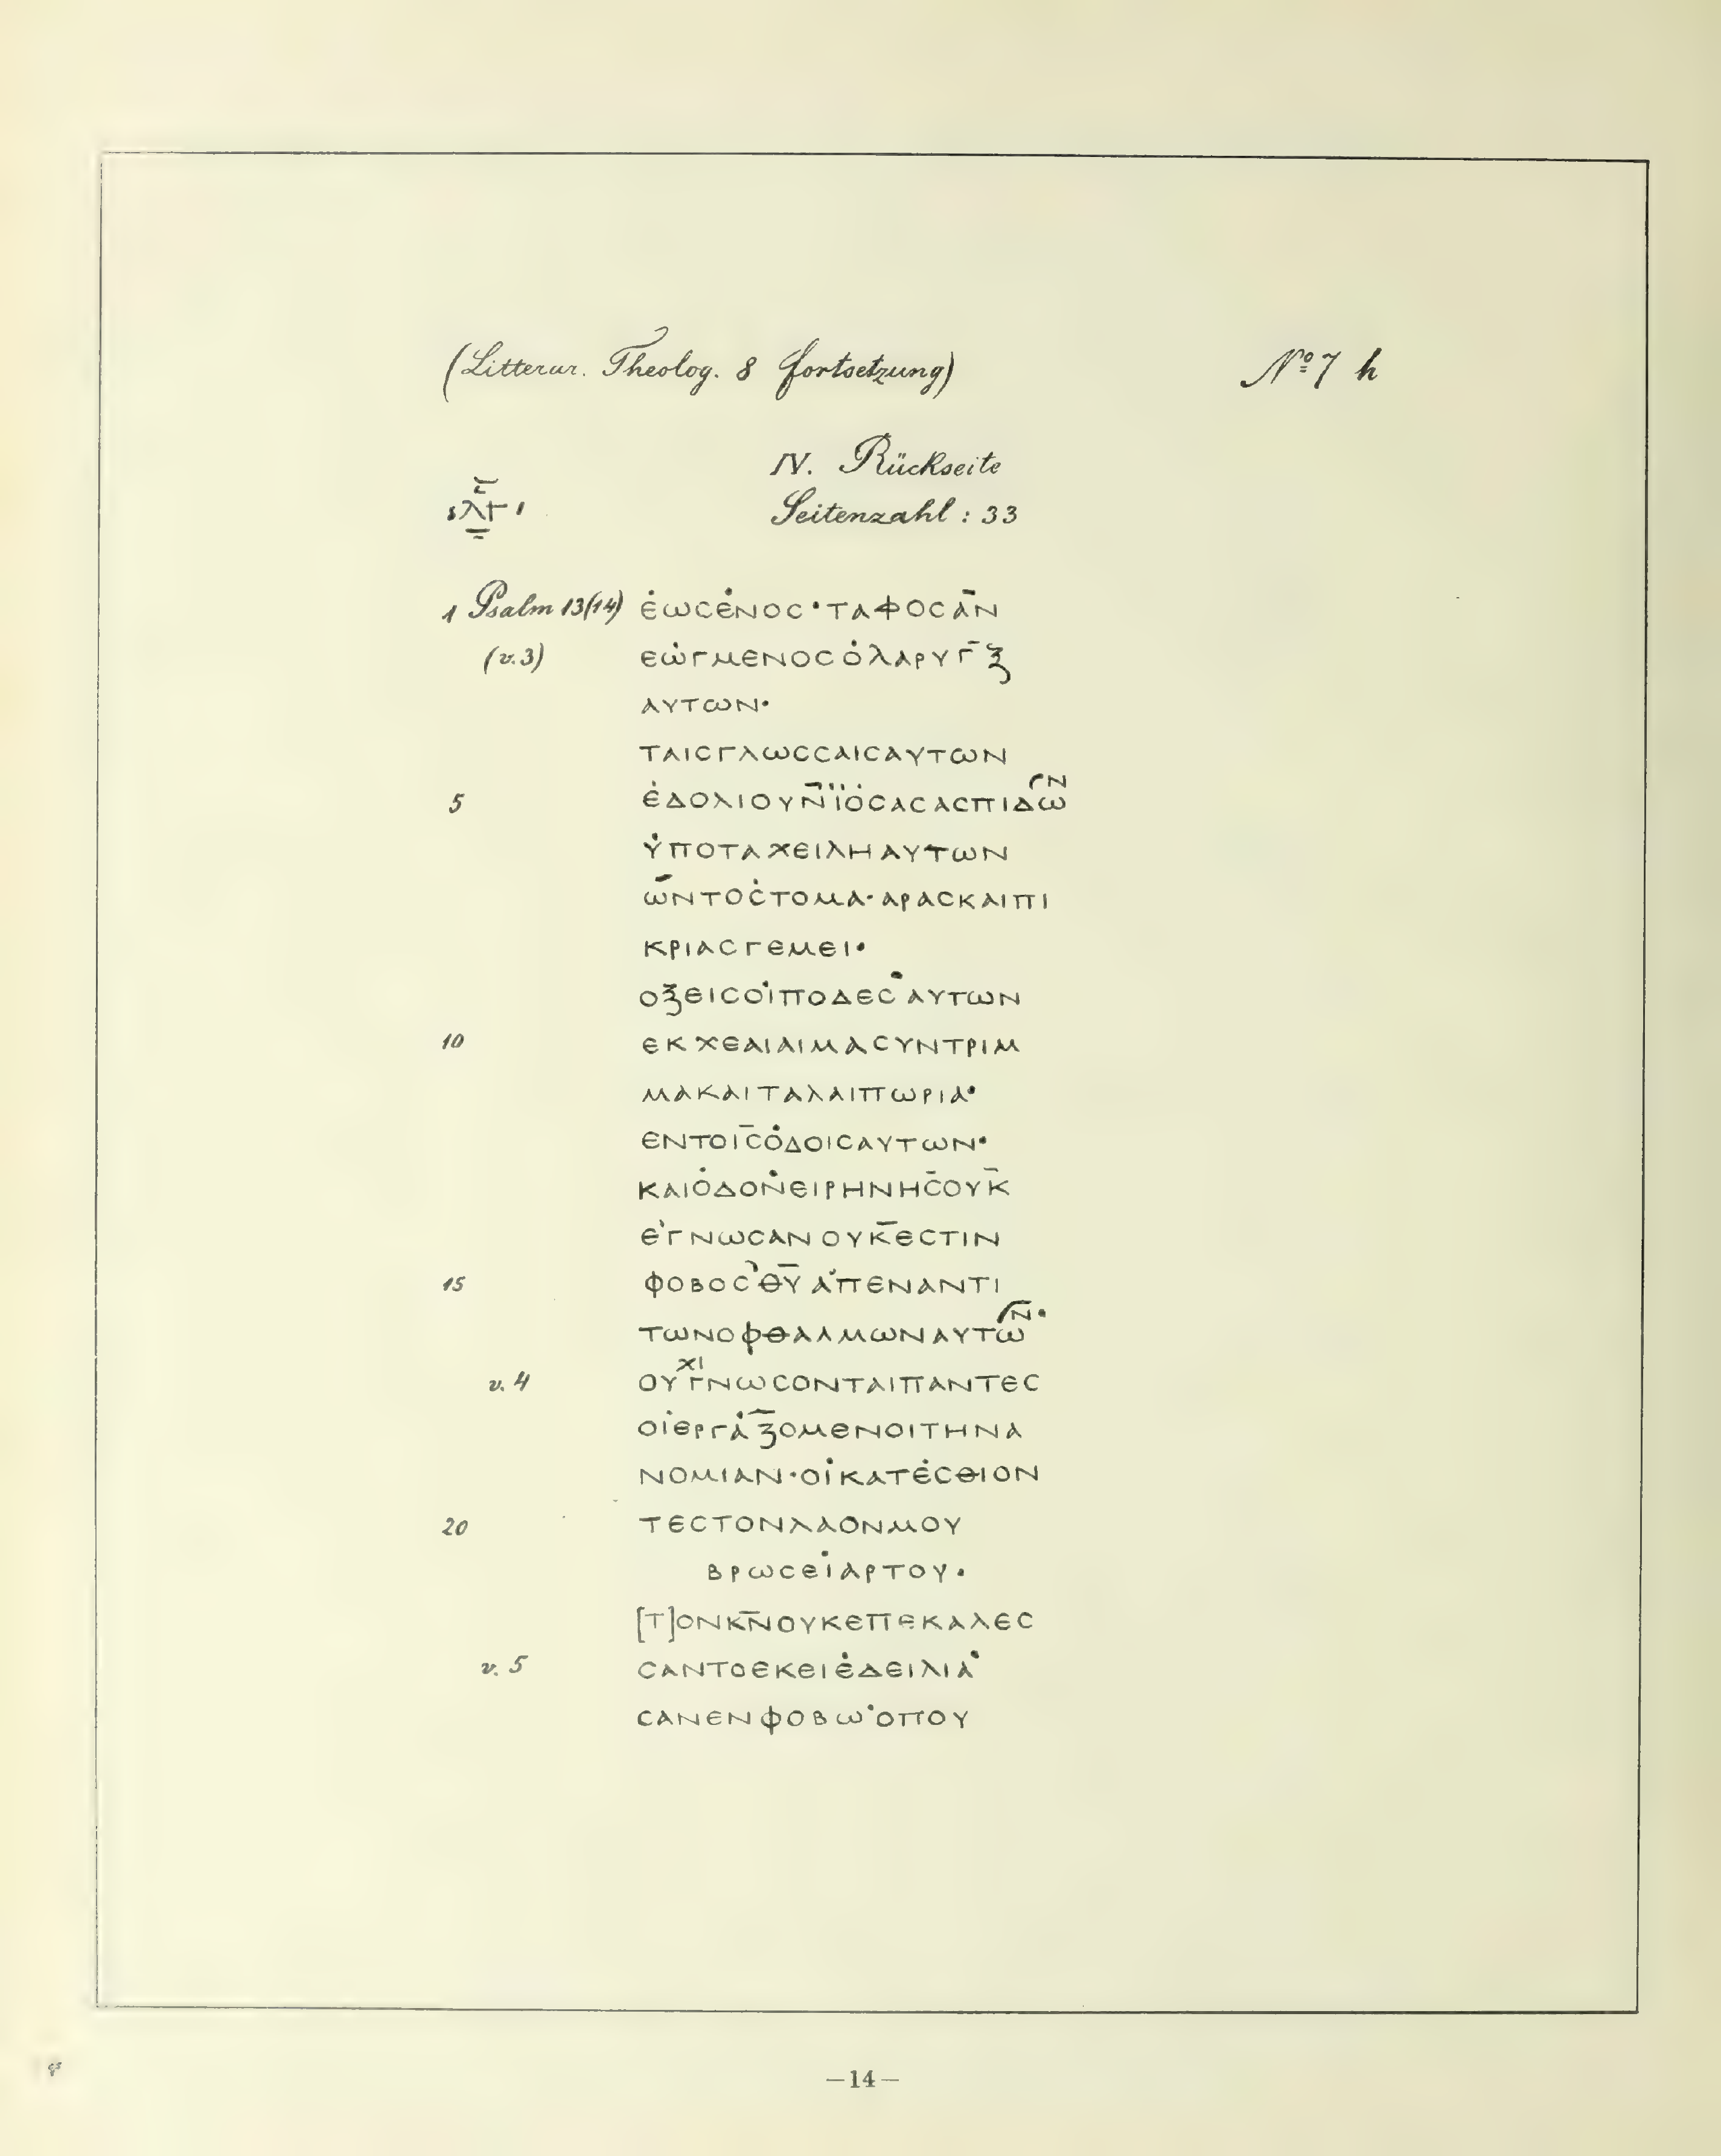 (Litterar. Theolog. 8 Fortsetzung) Nº 7 h
IV. Rückseite
λγ Seitenzahl : 33
1 Psalm 13(14) ἑωϲἑνοϲ·ταφοϲᾱν
(v.3) εωγμενοϲὁλαρυγ̄ξ
αυτων·
ταιϲγλωϲϲαιϲαυτων
5 ἐδολιουν̄ϊὁϲαϲαϲπιδων
ὑποταχειληαυτων
ω̄ντοϲτομα·αραϲκαιπι
κριαϲγεμει·
οξειϲοἱποδεϲ·αυτων
10 εκχεαιαιμαϲυντριμ
μακαιταλαιπωρια·
εντοιϲ̄ὁδοιϲαυτων·
καιὁδονειρηνηϲ̄ουκ̄
εγνωϲανουκ̄εϲτιν
15 φοβοϲθ̄ῡαπεναντι
τωνοφθαλμωναυτων̄·
v. 4 ουχιγνωϲονταιπαντεϲ
οἱεργαζ̄ομενοιτηνα
νομιαν·οἱκατεϲθιον
20 τεϲτονλαονμου
βρωϲεἱαρτου·
[τ]ονκ̄ν̄ουκεπεκαλεϲ
v. 5 ϲαντοεκειἐδειλια·
ϲανενφοβω·οπου
—14—